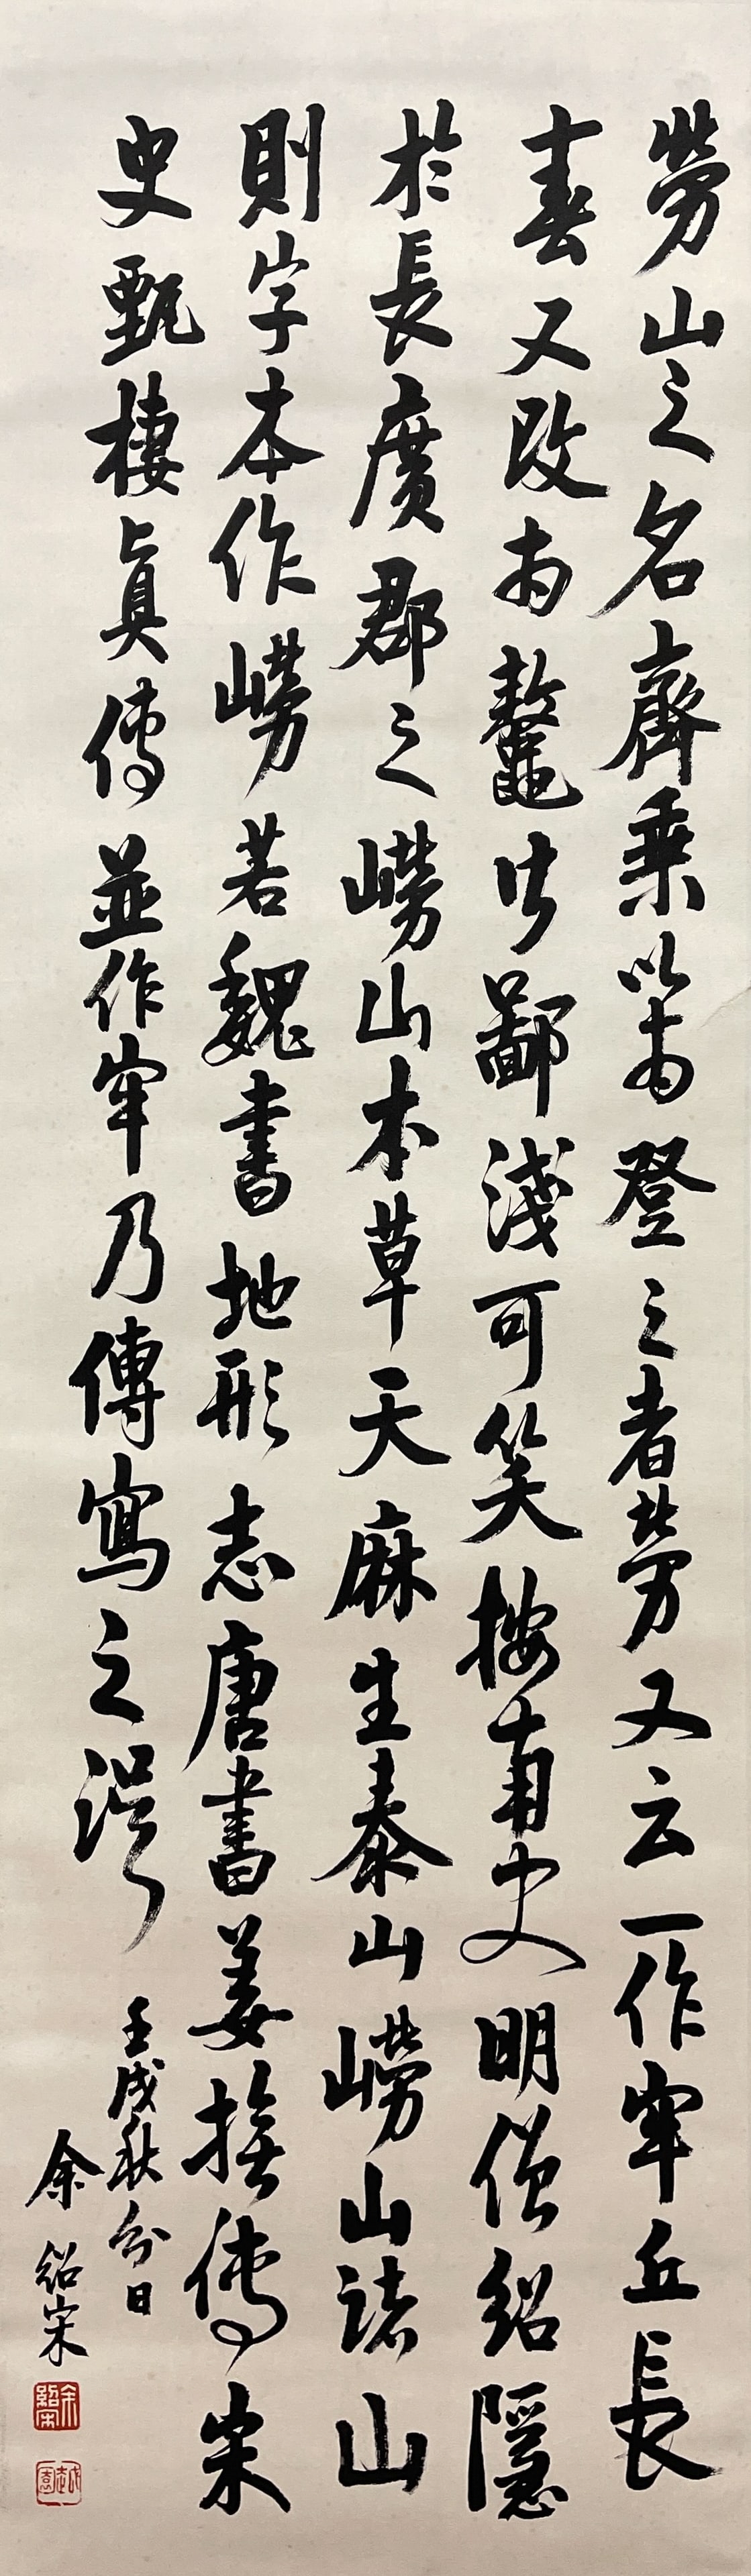 勞山之名齊乘以為登之者勞又云一作牢丘長
春又改為鼇皆鄙淺可笑按南史明僧紹隱
於長廣郡之嶗山本草天麻生泰山嶗山諸山
則字本作嶗若魏書地形志唐書姜撫傳宋
史甄棲真傳並作牢乃傳寫之誤
壬戌秋分日
余紹宋
余紹宋
越園